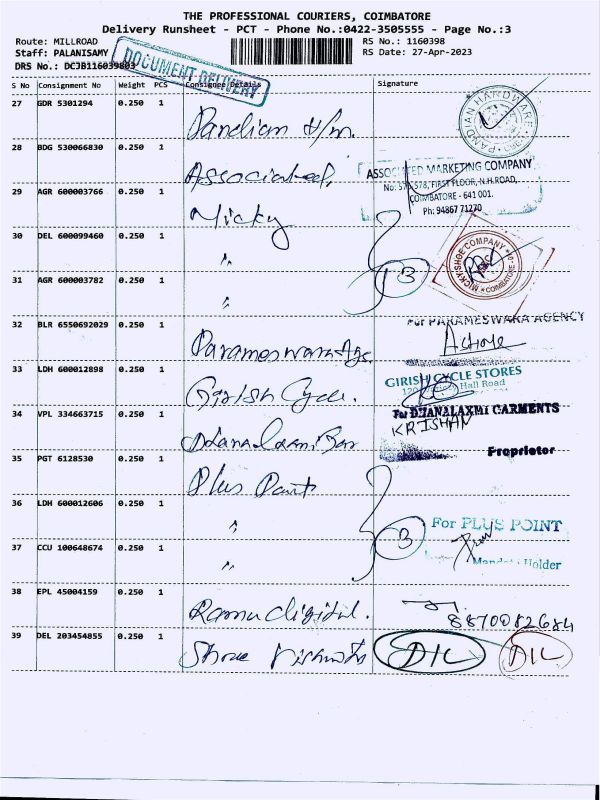 THE PROFESSIONAL COURIERS, COIMBATORE
Delivery Runsheet - PCT - Phone No.:0422-3505555 - Page No.:3
Route: MILLROAD RS No.: 1160398
Staff: PALANISAMY RS Date: 27-Apr-2023
DRS No.: DCJB116039803
DOCUMENT DELIVERY
S No Consignment No Weight PCS Consignee Details Signature
27 GDR 5301294 0.250 1 Pandian H/m.
PANDIAN HARDWARE
28 BDG 530066830 0.250 1 Associated,
ASSOCIATED MARKETING COMPANY
No: 576,578, FIRST FLOOR, N.H.ROAD,
COIMBATORE - 641 001.
Ph: 94867 71270
29 AGR 600003766 0.250 1 Micky
30 DEL 600099460 0.250 1 "
MICKY SHOE COMPANY
COIMBATORE
3
31 AGR 600003782 0.250 1 "
32 BLR 6550692029 0.250 1 Parameswara Agc
For PARAMESWARA AGENCY
33 LDH 600012898 0.250 1 Girish Cycle.
GIRISH CYCLE STORES
Hall Road
34 VPL 334663715 0.250 1
For DHANALAXMI GARMENTS
KRISHAN
Proprietor
35 PGT 6128530 0.250 1 Plus Point
36 LDH 600012606 0.250 1 "
3
For PLUS POINT
37 CCU 100648674 0.250 1 "
Holder
38 EPL 45004159 0.250 1 Ramu digital.
8870082684
39 DEL 203454855 0.250 1 Shree
D/L D/L